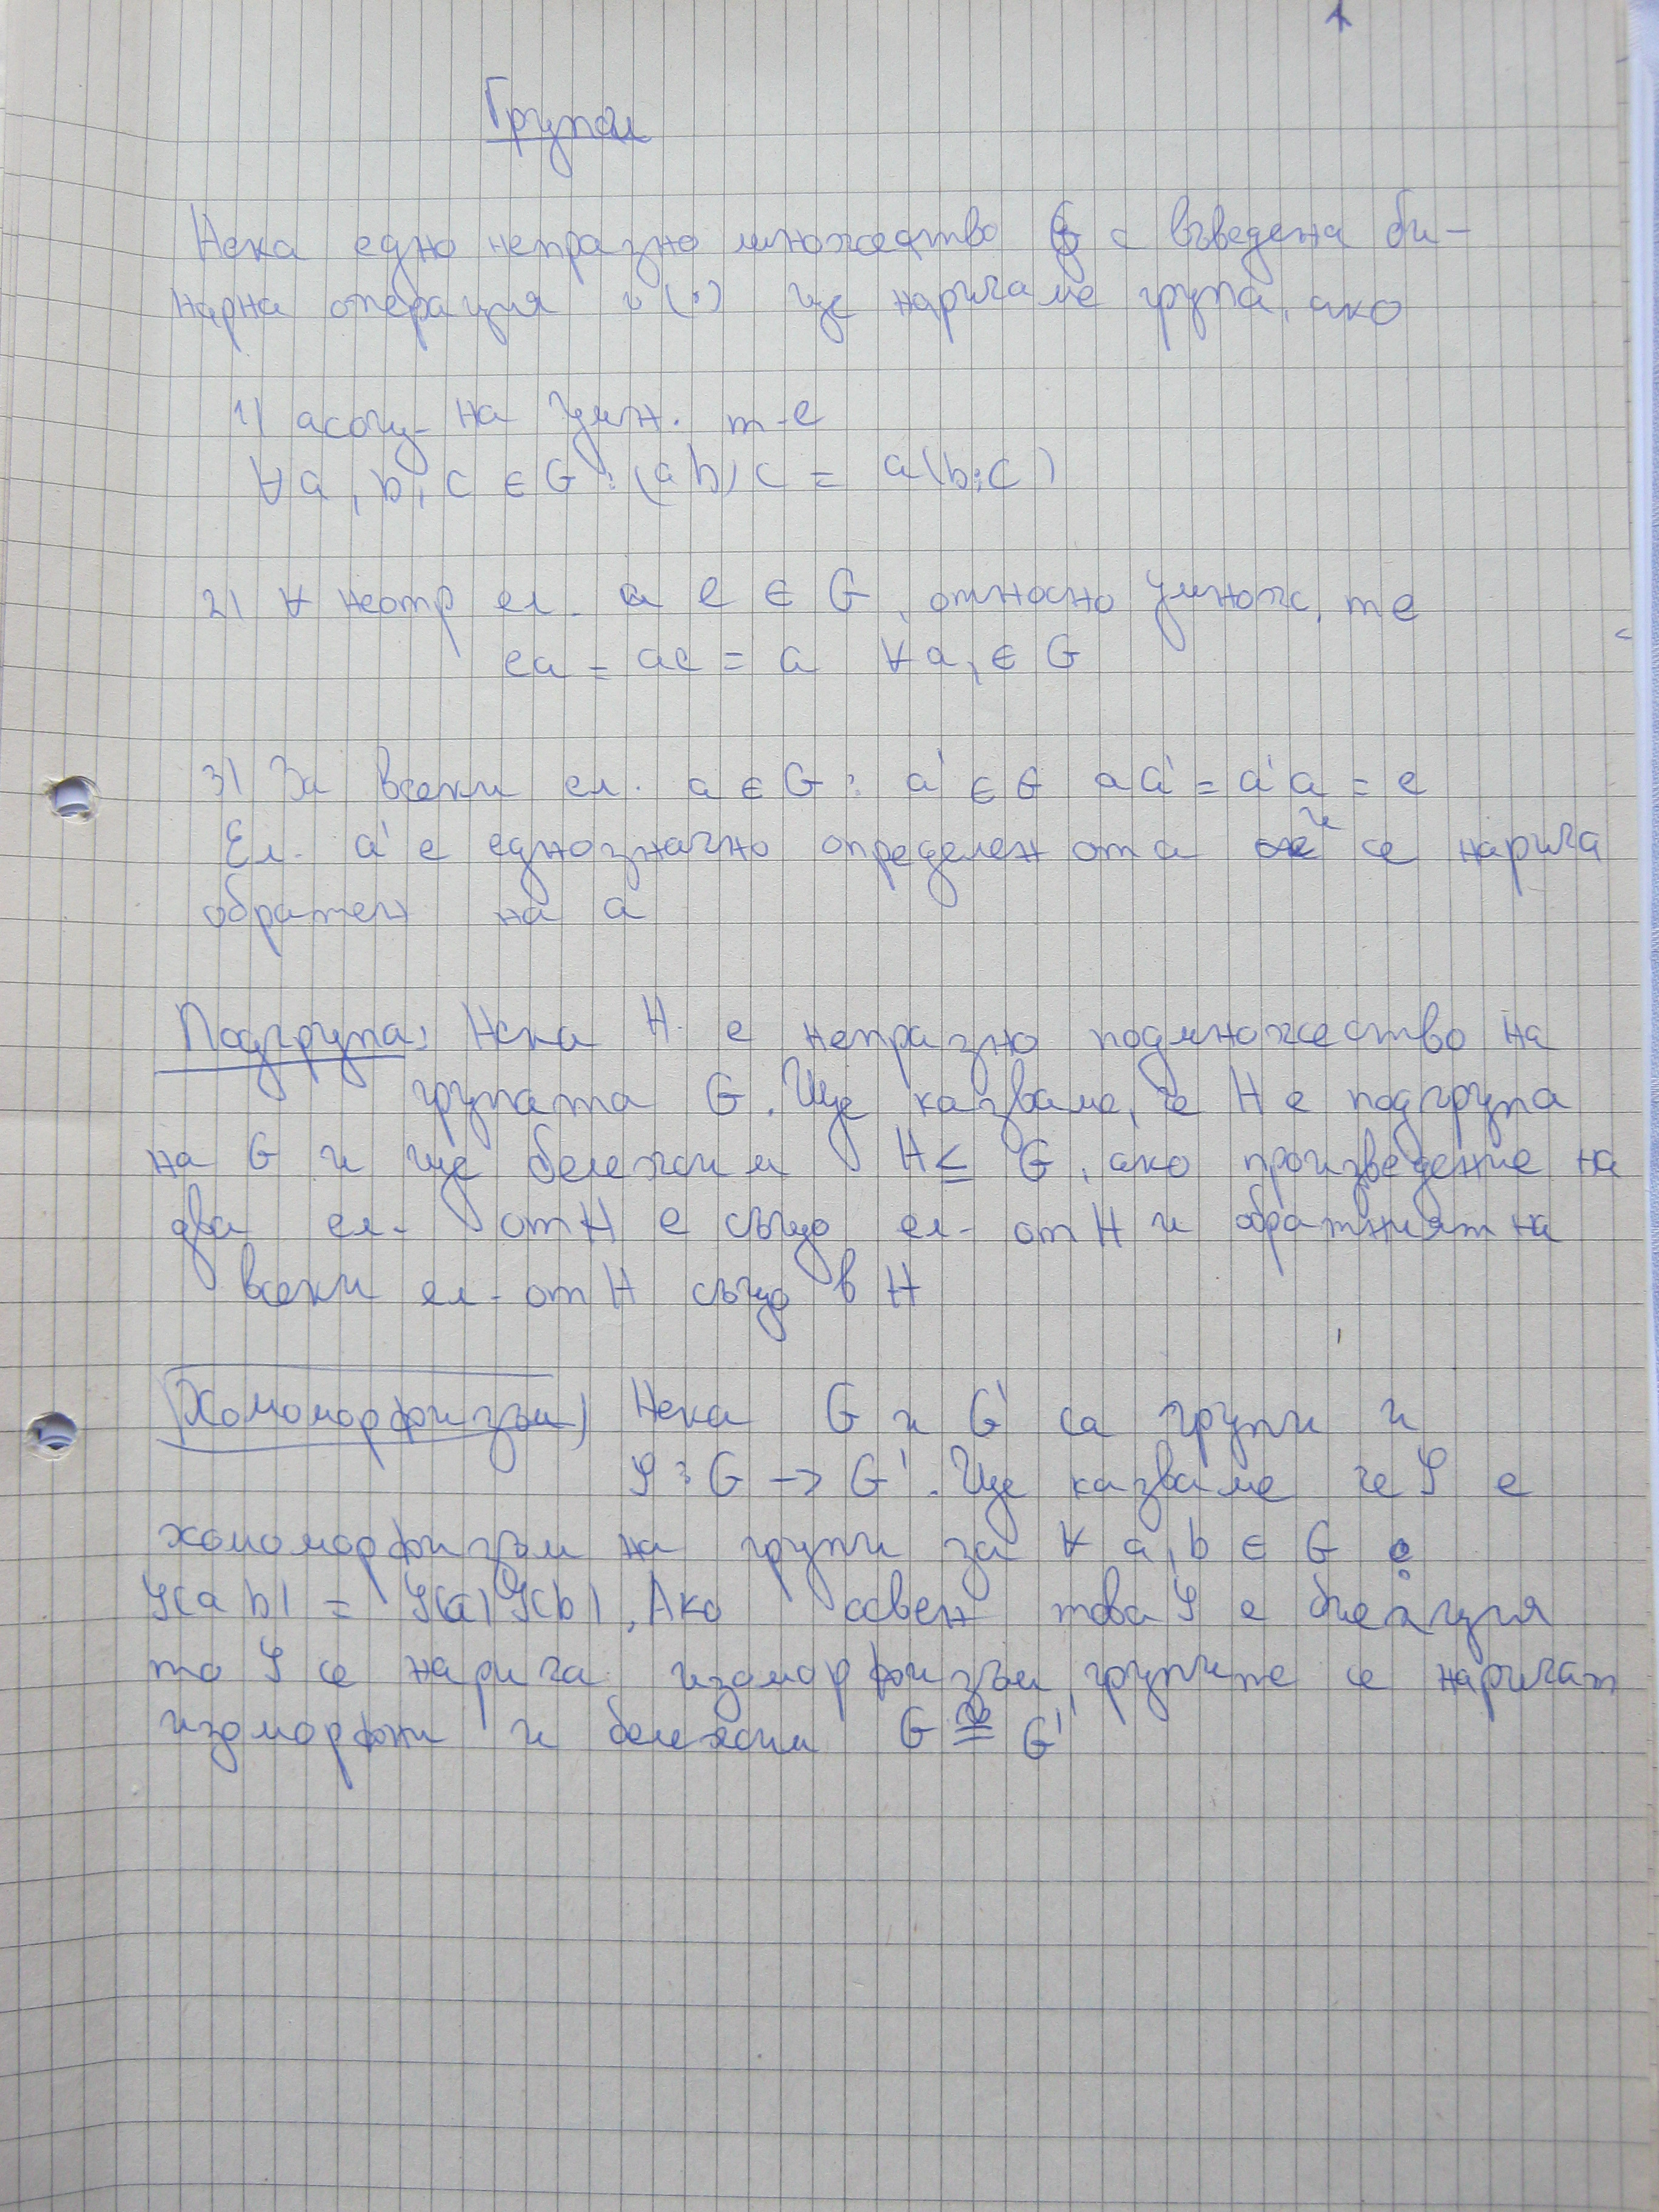 Групи
Нека едно непразно множество G с въведена би-
нарна операция (·) ще наричаме група, ако
1) асоц- на умн. т-е
∀a, b, c ∈ G : (ab)c = a(b;c)
2) ∀ неутр ел. e ∈ G, относно умнож, те
ea = ae = a ∀a, ∈ G
3) За всеки ел. a ∈ G : a' ∈ G aa' = a'a = e
Ел. a' е еднозначно определен от a и се нарича
обратен на a
Подгрупа: Нека H е непразно подмножество на
групата G. Ще казваме, че H е подгрупа
на G и ще бележим H ≤ G, ако произведение на
два ел- от H е също ел- от H и обратният на
всеки ел- от H също в H
Хомоморфизъм) Нека G и G' са групи и
φ : G -> G'. Ще казваме че φ е
хомоморфизъм на групи за ∀ a, b ∈ G
φ(ab) = φ(a)φ(b). Ако освен това φ е биекция
то φ се нарича изоморфизъм, групите се наричат
изоморфни и бележим G ≅ G'